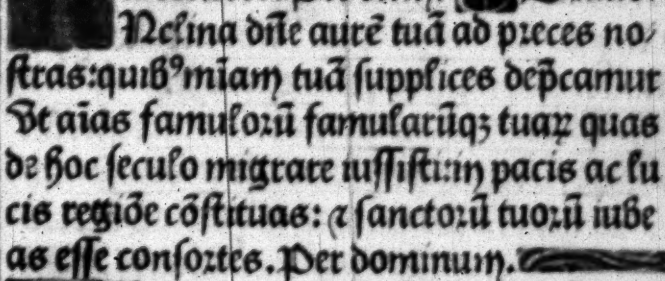 Nclina dñe aurē tuā ad preces no/
ſtras: quibꝰ mi̅am tuā ſupplices dep̄camur
Vt ai̅as famuloꝛū famularūqꝫ tuaꝝ quas
de hoc ſeculo migrare iuſſiſti: in pacis ac lu
cis regiōe cōſtituas: ⁊ ſanctoꝛū tuoꝛū iube
as eſſe conſoꝛtes. Per dominum.